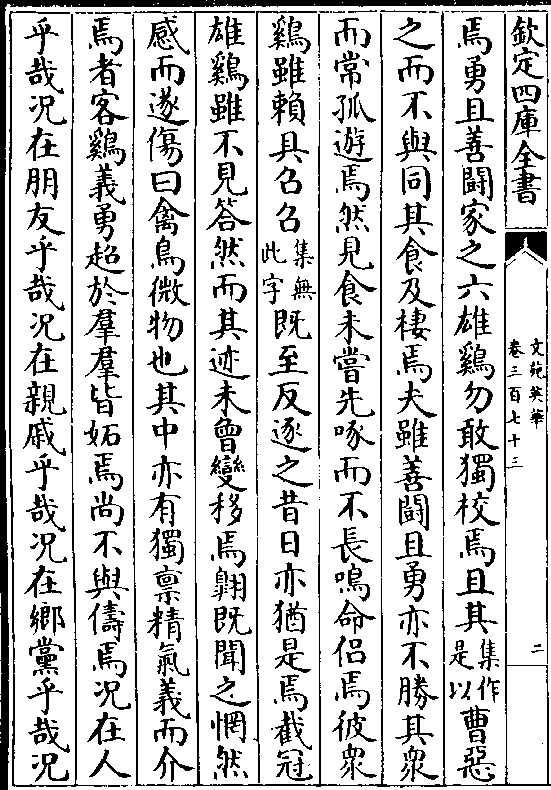 欽定四庫全書
文苑英華
卷三百七十三
二
焉勇且善鬪家之六雄鷄勿敢獨校焉且其集作是以曹惡
之而不與同其食及棲焉夫雖善鬪且勇亦不勝其衆
而常孤遊焉然見食未嘗先啄而不長鳴命侶焉彼衆
鷄雖賴其召召集無此字既至反逐之昔日亦猶是焉截冠
雄鷄雖不見答然而其迹未曾變移焉翺既聞之惘然
感而遂傷曰禽鳥微物也其中亦有獨禀精氣義而介
焉者客鷄義勇超於羣羣皆妬焉尚不與儔焉况在人
乎哉况在朋友乎哉况在親戚乎哉况在鄉黨乎哉况